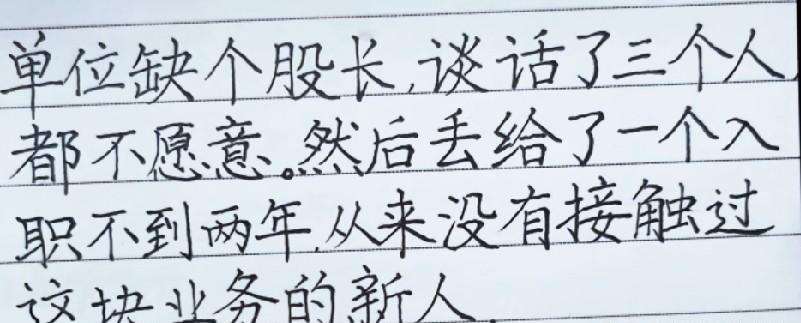 单位缺个股长,谈话了三个人,
都不愿意。然后丢给了一个入
职不到两年,从来没有接触过
这块业务的新人.